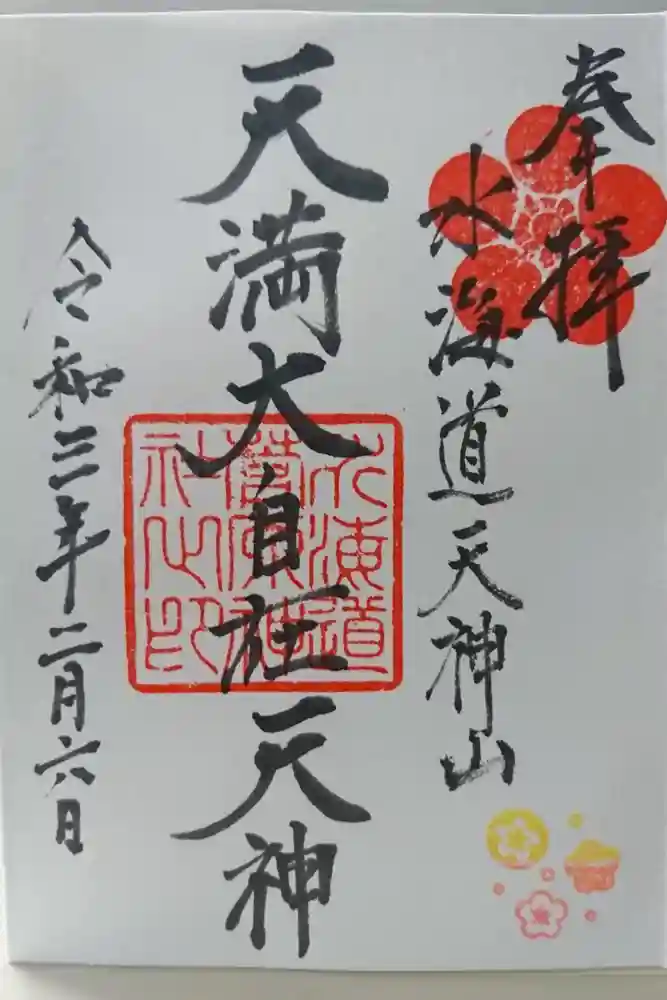 奉拝
水海道天神山
天満大自在天神
水海道
菅原神
社之印
令和三年二月六日